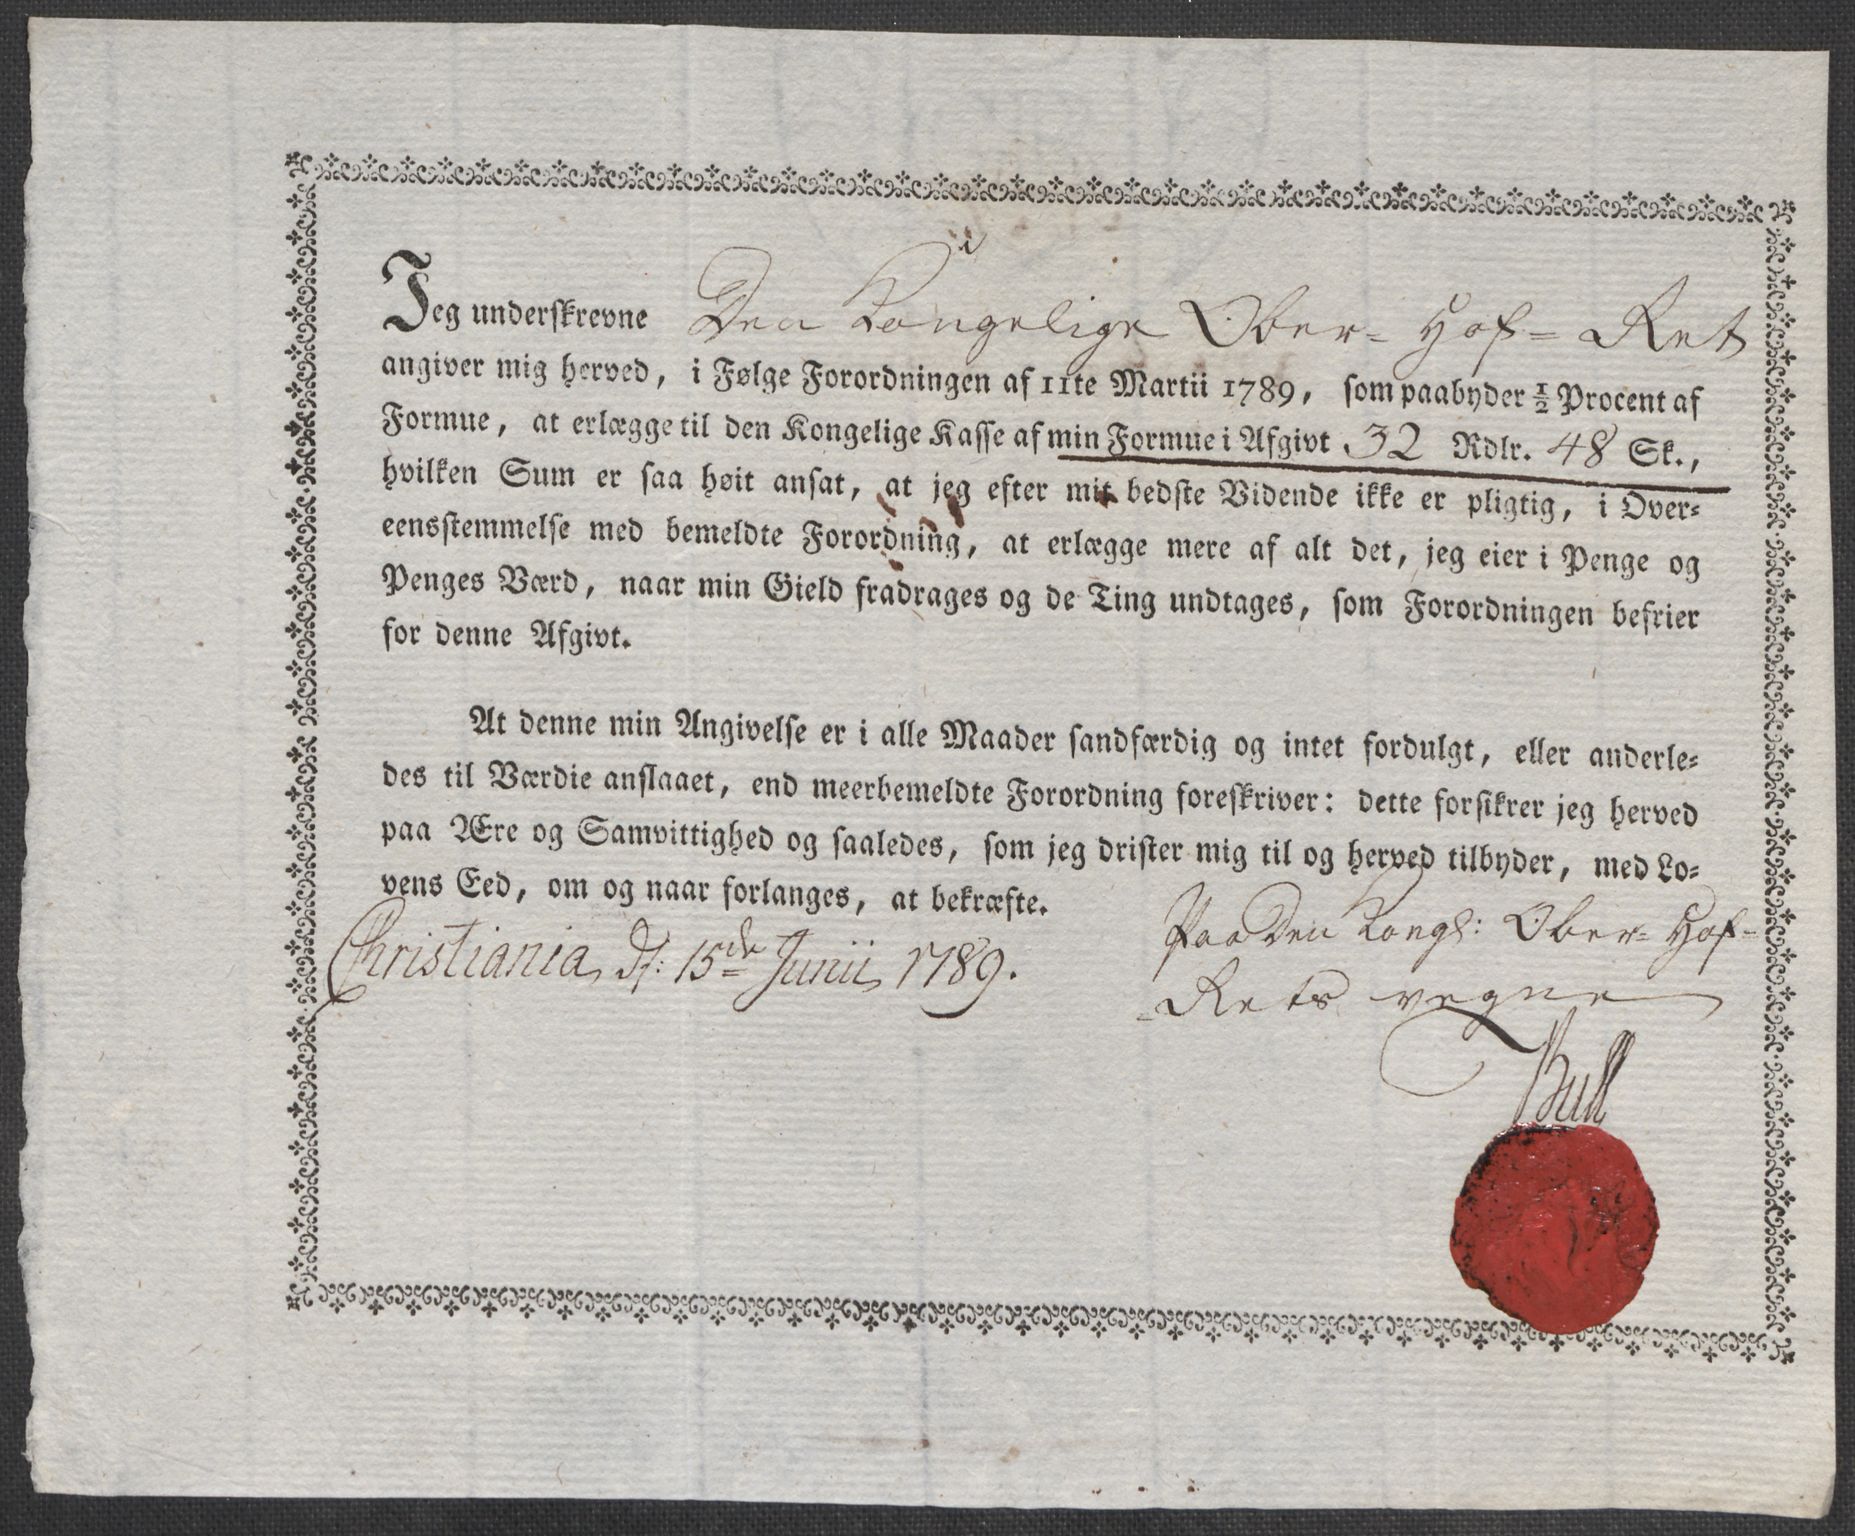 Jeg underskrevne Den Kongelige Ober- Hof- Ret
angiver mig herved, i Følge Forordningen af 11te Martii 1789, som paabyder ½ Procent af
Formue, at erlægge til den Kongelige Kasse af min Formue i Afgivt 32 Rdlr. 48 Sk.,
hvilken Sum er saa høit ansat, at jeg efter mit bedste Vidende ikke er pligtig, i Over-
eensstemmelse med bemeldte Forordning, at erlægge mere af alt det, jeg eier i Penge og
Penges Værd, naar min Gield fradrages og de Ting undtages, som Forordningen befrier
for denne Afgivt.
At denne min Angivelse er i alle Maader sandfærdig og intet fordulgt, eller anderle-
des til Værdie anslaaet, end meerbemeldte Forordning foreskriver: dette forsikrer jeg herved
paa Ære og Samvittighed og saaledes, som jeg drister mig til og herved tilbyder, med Lo-
vens Eed, om og naar forlanges, at bekræfte.
Christiania, d: 15de Junii 1789.
Paa Den Kongl: Ober- Hof-
Rets vegne
Bull